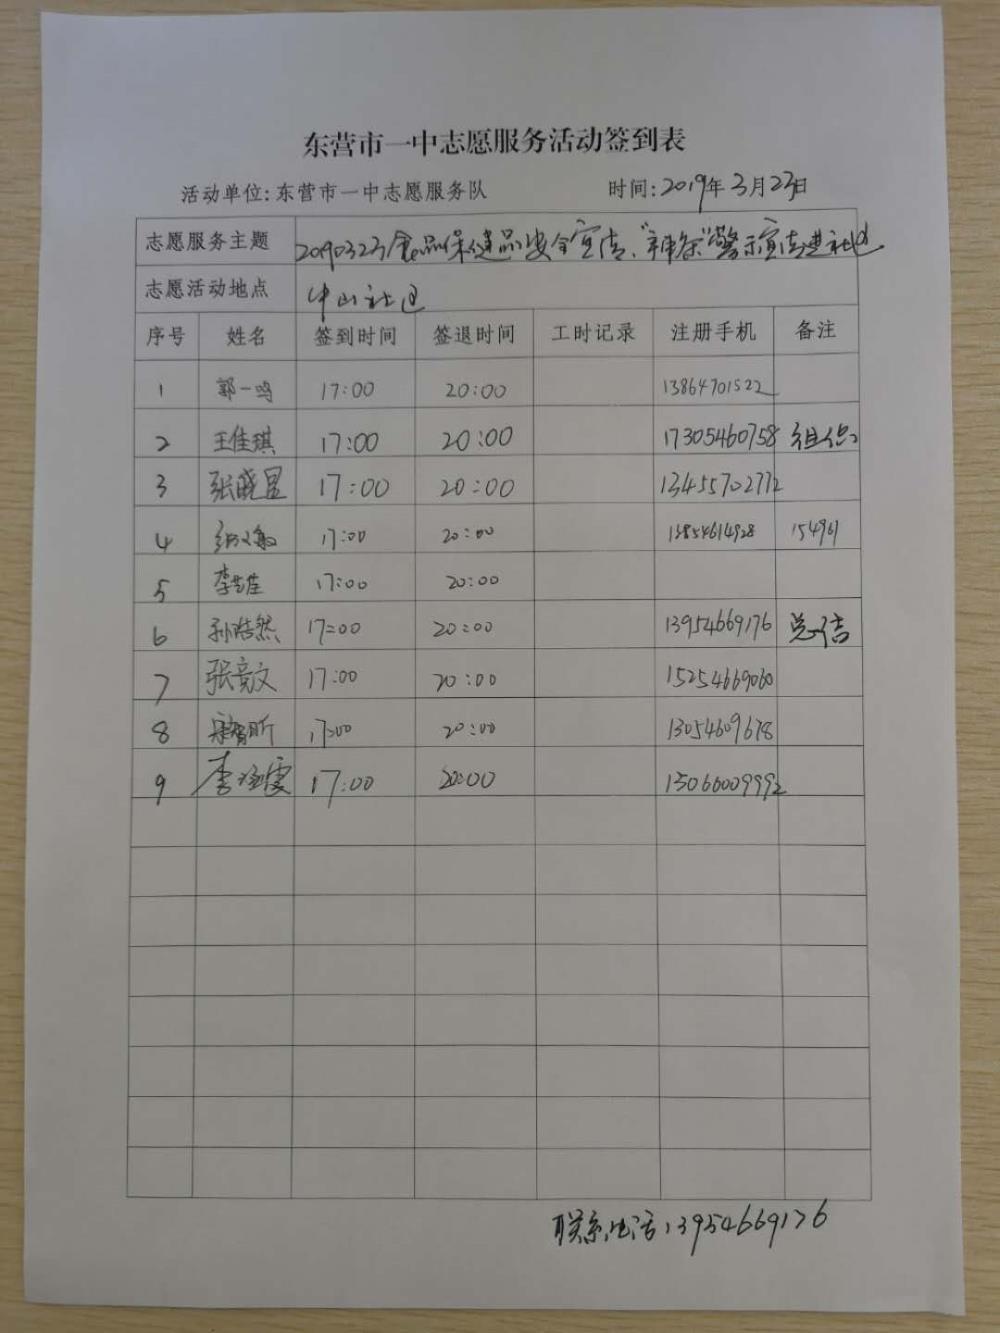 东营市一中志愿服务活动签到表
活动单位:东营市一中志愿服务队 时间:2019年3月23日
志愿服务主题 20190323食品保健品安全宣传、警示宣传进社区
志愿活动地点 中山社区
序号 姓名 签到时间 签退时间 工时记录 注册手机 备注
1 郭一鸣 17:00 20:00 13864701522
2 王佳琪 17:00 20:00 17305460758 组织
3 张晓昱 17:00 20:00 13455702772
4 17:00 20:00 13854614928 154961
5 李芸萑 17:00 20:00
6 孙浩然 17:00 20:00 13954669176 总结
7 张竞文 17:00 20:00 15254669060
8 17:00 20:00 13054609678
9 17:00 20:00 15066009992
联系电话:13954669176